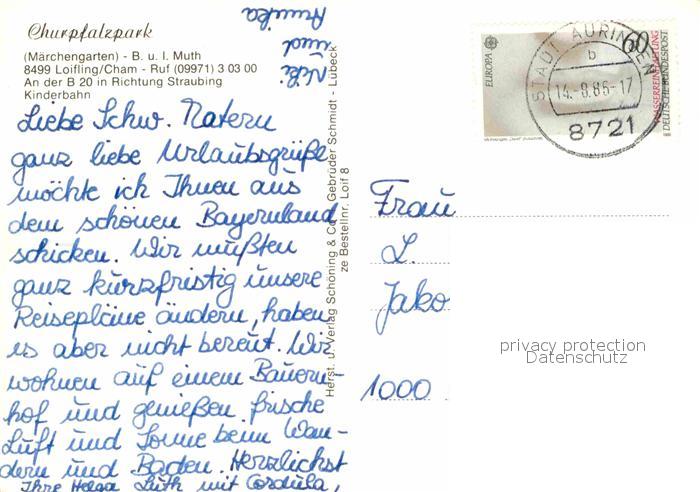 Churpfalzpark
(Märchengarten) - B. u. I. Muth
8499 Loifling/Cham - Ruf (09971) 3 03 00
An der B 20 in Richtung Straubing
Kinderbahn
Liebe Schw. Natern
ganz liebe Urlaubsgrüße
möchte ich Ihnen aus
dem schönen Bayernland
schicken. Wir mußten
ganz kurzfristig unsere
Reisepläne ändern, haben
es aber nicht bereut. Wir
wohnen auf einem Bauern-
hof und genießen frische
Luft und Sonne beim Wan-
dern und Baden. Herzlichst
Ihre Helga Luth mit Cordula,
und
Annika
Herst. u. Verlag Schöning & Co + Gebrüder Schmidt - Lübeck
ze Bestellnr. Loif 8
EUROPA
60
WASSERREINHALTUNG
DEUTSCHE BUNDESPOST
STADTLAURINGEN
b
14.-8.86-17
8721
Frau
L.
Jako
1000
privacy protection
Datenschutz